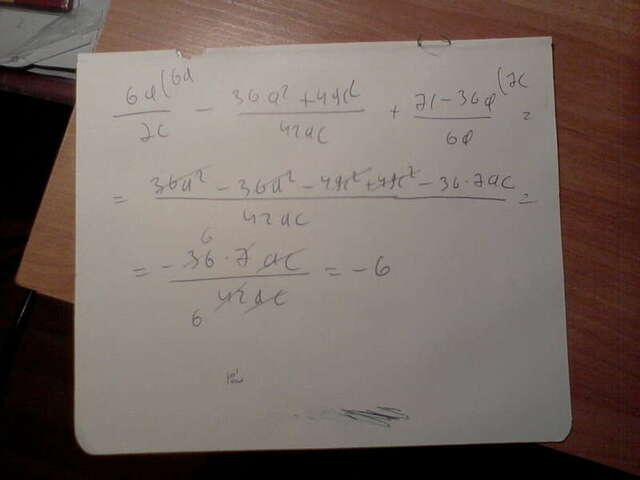 6a(6a / 7c - 36a² + 49c² / 42ac + 7c - 36a(7c / 6a =
= 36a² - 36a² - 49c² + 49c² - 36·7ac / 42ac =
= - 36·7ac / 42ac = -6
6
6